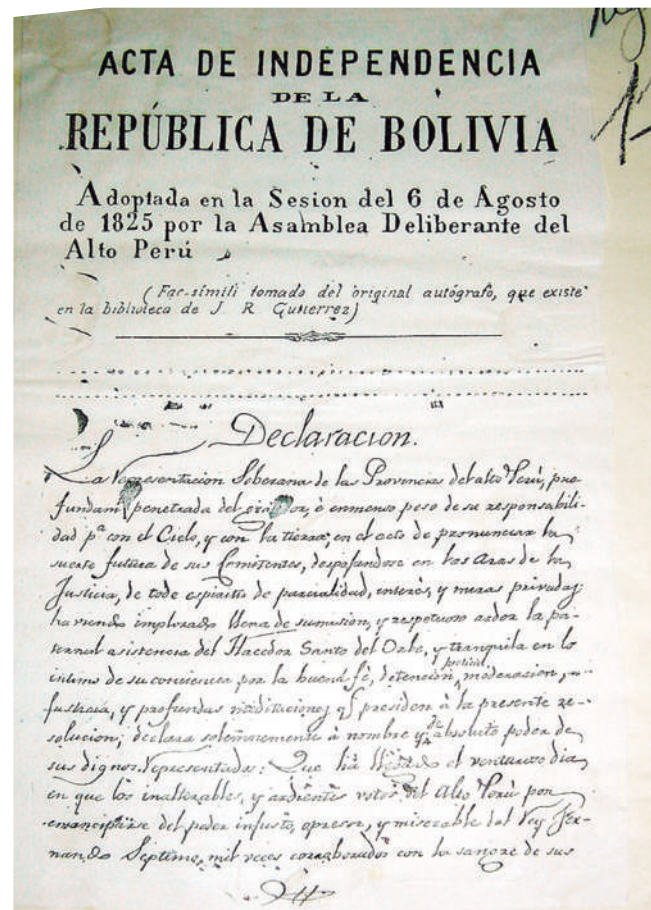 ACTA DE INDEPENDENCIA
DE LA
REPÚBLICA DE BOLIVIA
Adoptada en la Sesion del 6 de Agosto
de 1825 por la Asamblea Deliberante del
Alto Perú
(Fac-símili tomado del original autógrafo, que existe
en la biblioteca de J R Gutierrez)
Declaracion.
La Representacion Soberana de las Provincias del alto Perú, pro-
fundam penetrada del grandor, é inmenso peso de su responsabili-
dad pª con el Cielo, y con la tierra, en el acto de pronunciar la
suerte futura de sus Comitentes, despojandose en las aras de la
Justicia, de todo espíritu de parcialidad, interés, y miras privadas;
haviendo implorado llena de sumision, y respetuoso ardor la pa-
ternal asistencia del Hacedor Santo del Orbe, y tranquila en lo
intimo de su conciencia por la buena fé, detencion, moderacion,
justicia, y profundas meditaciones qe presiden à la presente re-
solucion; declara solemnemente à nombre y de absoluto poder de
sus dignos Representados: Que há llegado el venturoso dia
en que los inalterables, y ardientes votos del Alto Perú por
emanciparse del poder injusto, opresor, y miserable del Rey Fer-
nando Septimo, mil veces corroborados con la sangre de sus